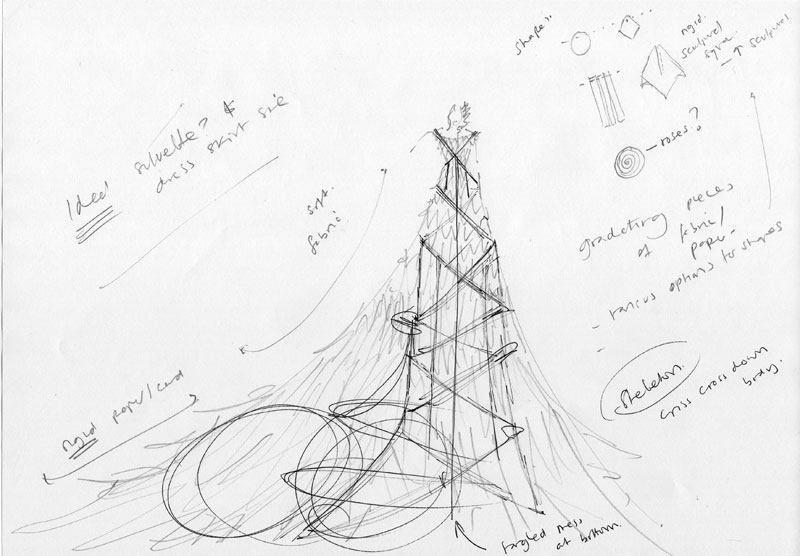 Ideal silouette? &
dress skirt size
soft.
fabric
rigid paper/card
shapes.
rigid.
sculptural
- ↑ sculptural
- roses?
gradating pieces
of fabric/
paper -
- various options for shapes
-
skeleton.
criss cross down
body.
tangled mess
at bottom.